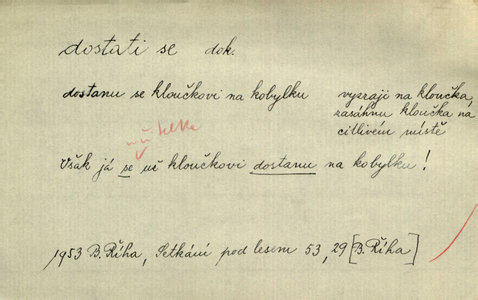 dostati se dok.
dostanu se kloučkovi na kobylku vyzraji na kloučka,
zasáhnu kloučka na
citlivém místě
Však já se už kloučkovi dostanu na kobylku!
1953 B. Říha, Setkání pod lesem 53, 29 [B. Říha]